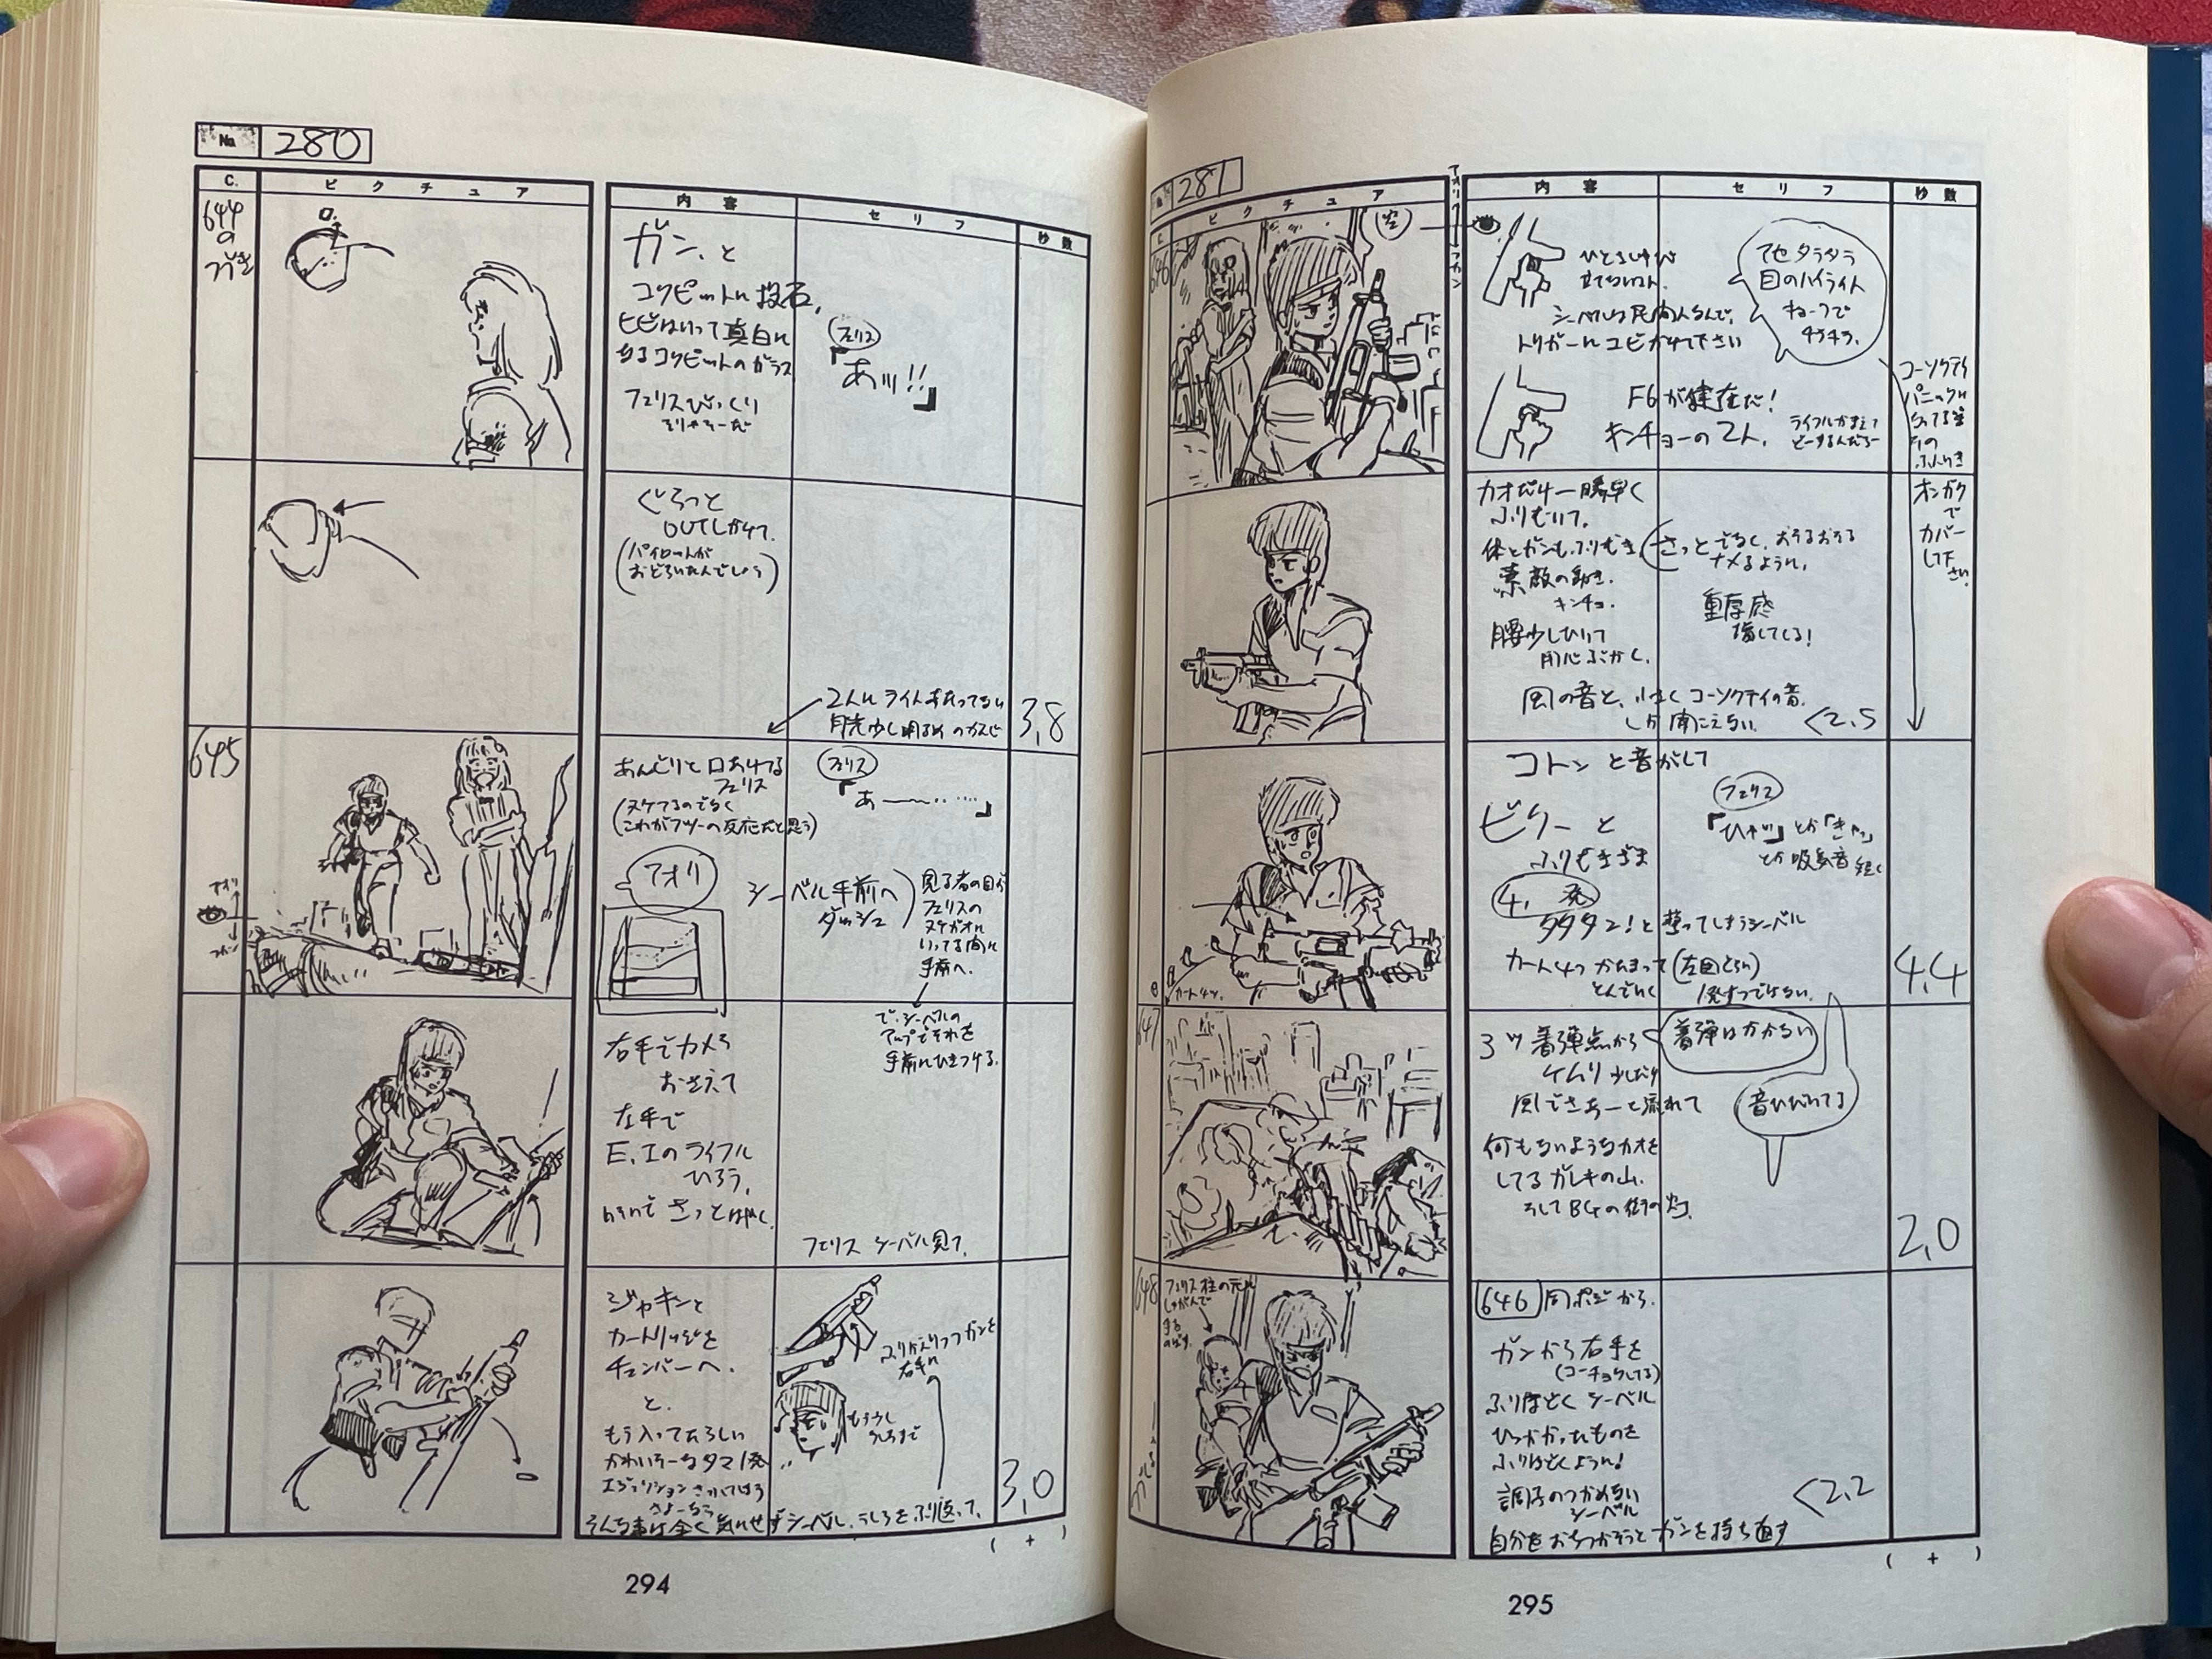 No. 280
C.
ピクチュア
内容
セリフ
秒数
644
の
つづき
ガン、と
コクピットに投石、
ヒビはいって真白に
なるコクピットのガラス
フェリスびっくり
そりゃそーだ
フェリス
「あッ!!」
ぐらっと
OUTしかけて、
(パイロットが
おどろいたんでしょう)
2人にライトあたってない
月光少し明るめのかんじ
3,8
645
あんぐりと口あけてる
フェリス
(ヌケてるのでなく
(これがフツーの反応だと思う)
フェリス
「あ――‥‥」
アオリ
シーベル手前へ
ダッシュ
見る者の目が
フェリスの
ヌケガオに
いってる間に
手前へ。
で、シーベルの
アップでそれを
手前にひきつける。
右手でカメラ
おさえて
左手で
E,Iのライフル
ひろう、
さっとはやく
フェリス シーベル見て、
ジャキンと
カートリッジを
チェンバーへ。
と、
もう入ってたらしい
かわいそーなタマ1発
さよーなら
ふりかえりつつガンを
右手に
もう少し
うしろまで
そんな事は全く気にせずシーベル、うしろをふり返って、
3,0
( + )
294
281
ピクチュア
内容
セリフ
秒数
646
ひとさしゆび
立てないいみ。
シーベルは民間人なんで、
トリガーにユビかけて下さい
アセタラタラ
目のハイライト
チラチラ。
F6が健在だ!
キンチョーの2人、
ライフルかまえて
どーするんだろー
コーソクテイ
パニックに
なってる
オンガク
で
カバー
して下
さい。
カオだけ一瞬早く
ふりむいて、
体とガンも、ふりむき
さっとでなく、おそるおそる
ナメるように、
索敵の動き。
キンチョ。
重厚感
腰少しひいて
用心ぶかく、
風の音と、小さくコーソクテイの音、
しか聞こえない。
<2,5
コトンと音がして
ビクーと
ふりむきざま
フェリス
「ひゃッ」とか「きゃッ」
とか吸気音 短く
4,発
タタタン!と撃ってしまうシーベル
カート4つ かたまって(左図とちがい)
とんでいく
1発ずつでない。
カート4ツ。
4,4
647
3ツ着弾点から
着弾はわからない
ケムリ少しだけ
風でさあーと流れて
音ひびいてる
何もないようなカオを
してるガレキの山、
そしてB4の街の灯。
2,0
648
フェリス柱の元に
しゃがんで
646 同ポジから、
ガンから右手を
(コーチョクしてる)
ふりほどくシーベル
ひっかかったものを
ふりほどくように!
調子のつかめない
シーベル
自分をおちつかそうとガンを持ち直す
<2,2
( + )
295